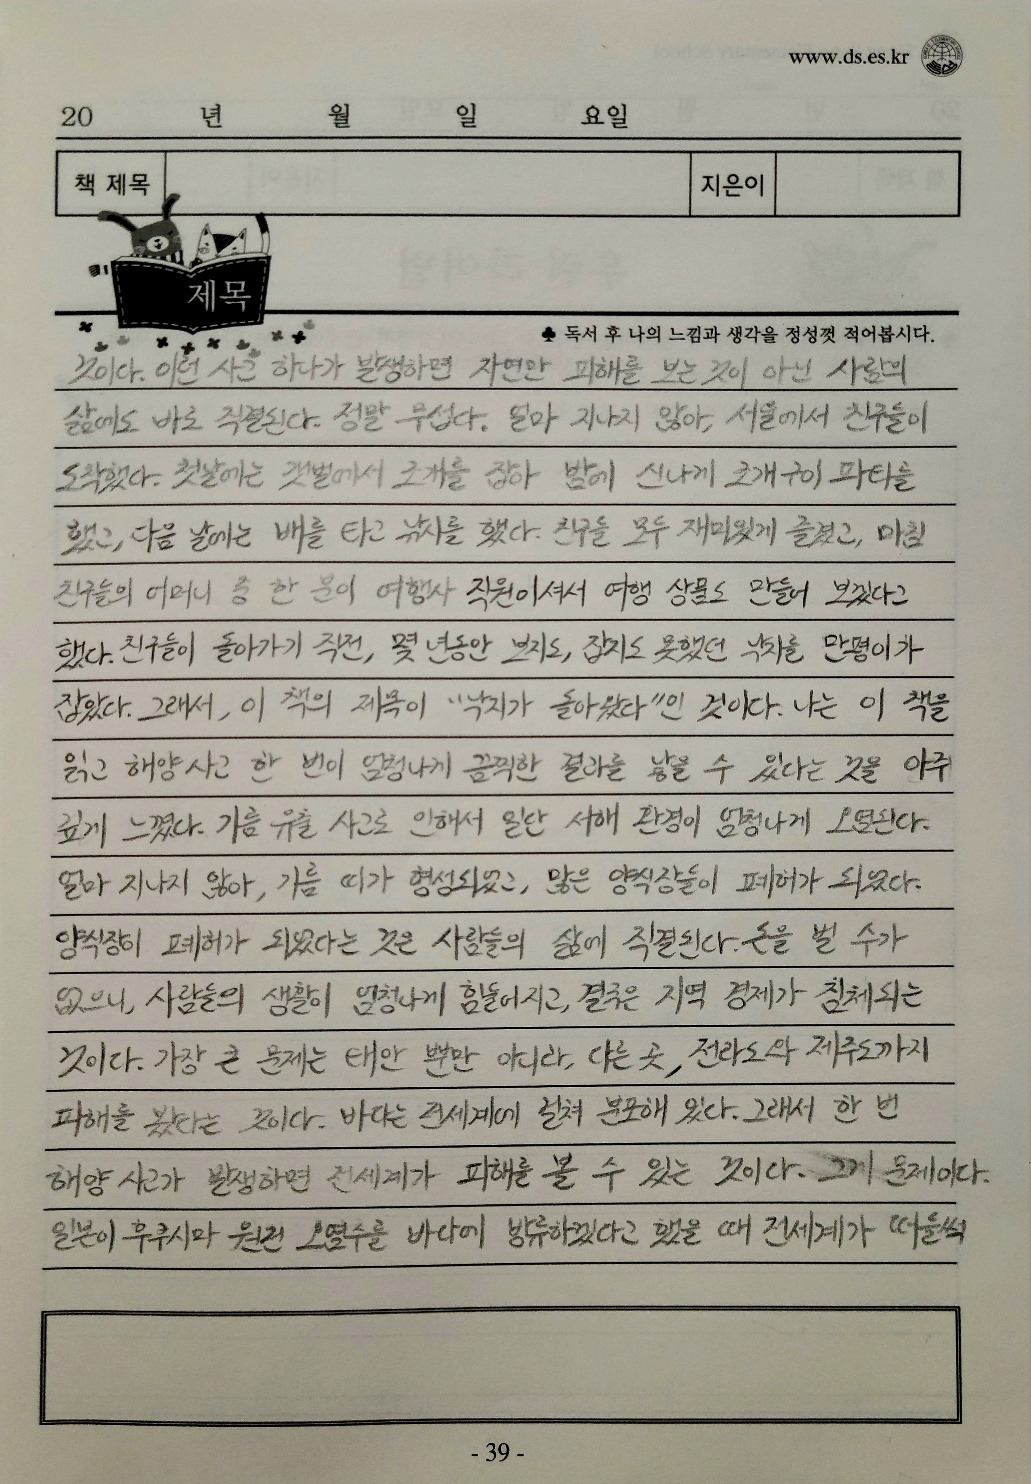 www.ds.es.kr
20 년 월 일 요일
책 제목 지은이
제목
♣ 독서 후 나의 느낌과 생각을 정성껏 적어봅시다.
것이다. 이런 사고 하나가 발생하면 자연만 피해를 보는 것이 아닌 사람의
삶에도 바로 직결된다. 정말 무섭다. 얼마 지나지 않아, 서울에서 친구들이
도착했다. 첫날에는 갯벌에서 조개를 잡아 밤에 신나게 조개구이 파티를
했고, 다음 날에는 배를 타고 낚시를 했다. 친구들 모두 재미있게 즐겼고, 마침
친구들의 어머니 중 한 분이 여행사 직원이셔서 여행 상품도 만들어 보겠다고
했다. 친구들이 돌아가기 직전, 몇 년동안 보지도, 잡지도 못했던 낙지를 만평이가
잡았다. 그래서, 이 책의 제목이 "낙지가 돌아왔다"인 것이다. 나는 이 책을
읽고 해양사고 한 번이 엄청나게 끔찍한 결과를 낳을 수 있다는 것을 아주
깊게 느꼈다. 기름 유출 사고로 인해서 일단 서해 환경이 엄청나게 오염된다.
얼마 지나지 않아, 기름 띠가 형성되었고, 많은 양식장들이 폐허가 되었다.
양식장이 폐허가 되었다는 것은 사람들의 삶에 직결된다. 돈을 벌 수가
없으니, 사람들의 생활이 엄청나게 힘들어지고, 결국은 지역 경제가 침체되는
것이다. 가장 큰 문제는 태안 뿐만 아니라, 다른 곳, 전라도와 제주도까지
피해를 봤다는 것이다. 바다는 전세계에 걸쳐 분포해 있다. 그래서 한 번
해양 사고가 발생하면 전세계가 피해를 볼 수 있는 것이다. 그게 문제이다.
일본이 후쿠시마 원전 오염수를 바다에 방류하겠다고 했을 때 전세계가 떠들썩
- 39 -